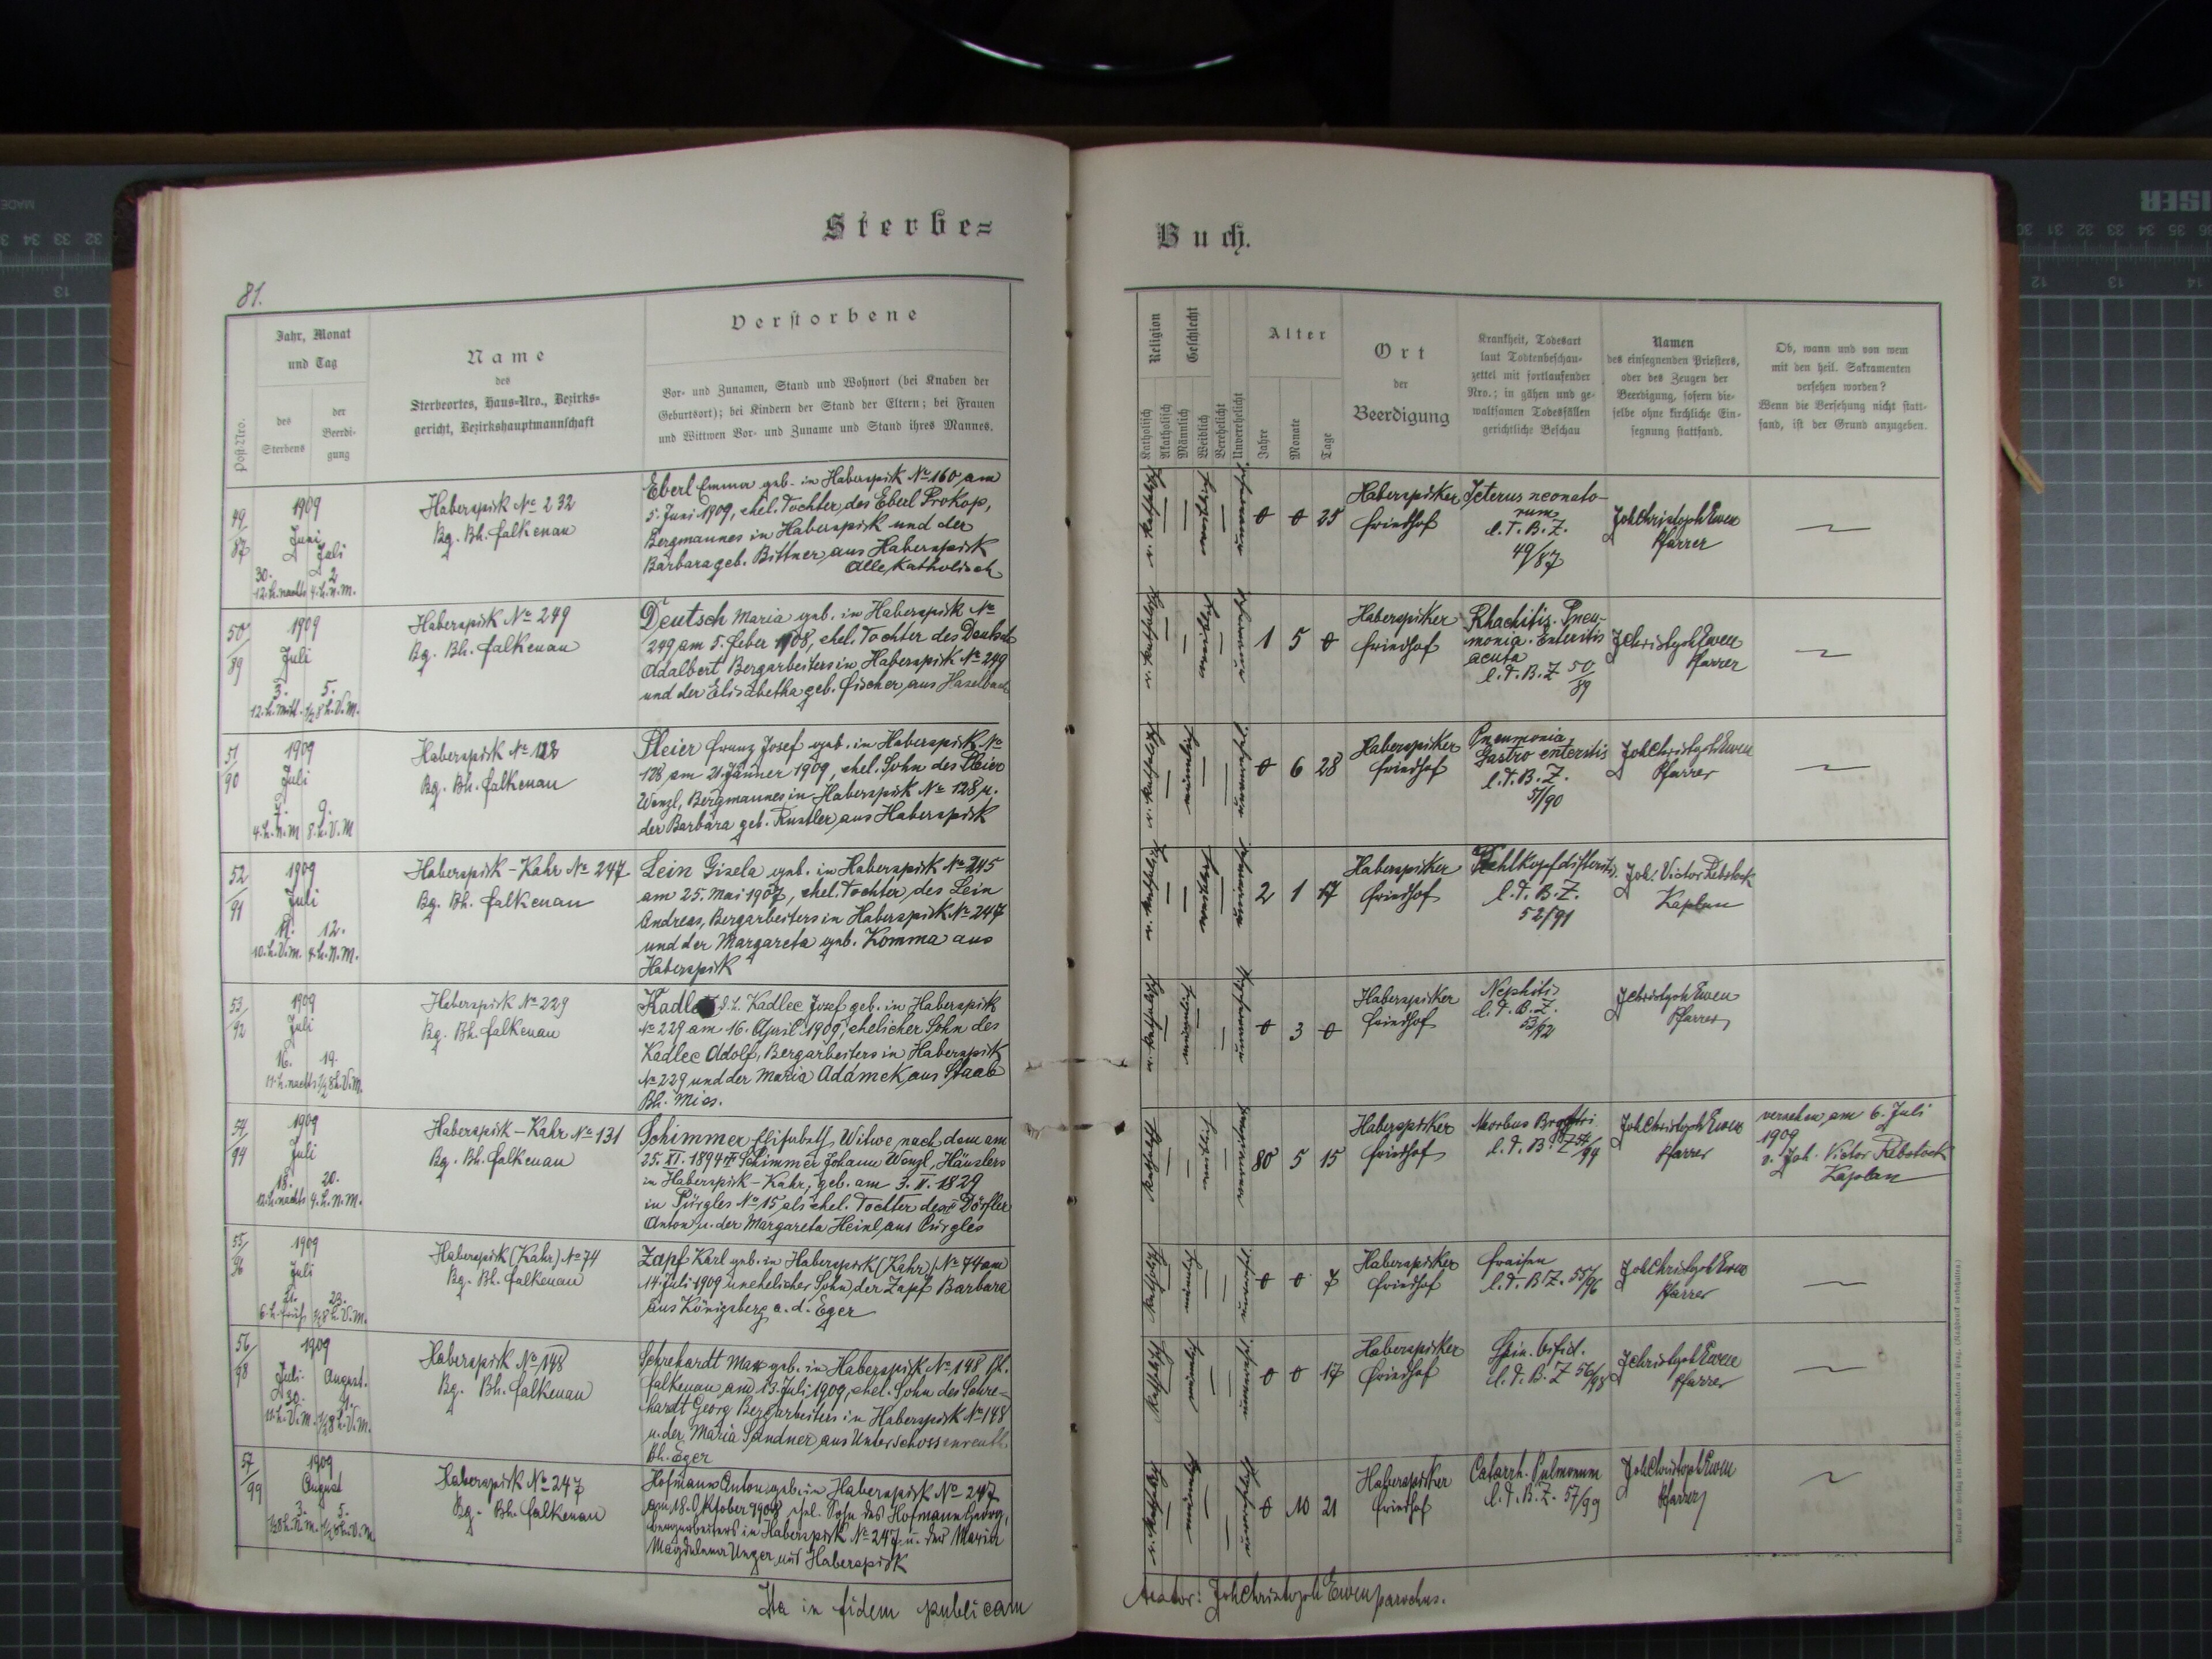 Sterbe=
Buch.
81.
Post-Nro.
Jahr, Monat
und Tag
des
Sterbens
der
Beerdi-
gung
Name
des
Sterbeortes, Haus-Nro., Bezirks-
gericht, Bezirkshauptmannschaft
Verstorbene
Vor- und Zunamen, Stand und Wohnort (bei Knaben der
Geburtsort); bei Kindern der Stand der Eltern; bei Frauen
und Wittwen Vor- und Zuname und Stand ihres Mannes.
Religion
Katholisch
Akatholisch
Geschlecht
Männlich
Weiblich
Verehelicht
Unverehelicht
Alter
Jahre
Monate
Tage
Ort
der
Beerdigung
Krankheit, Todesart
laut Todtenbeschau-
zettel mit fortlaufender
Nro.; in gähen und ge-
waltsamen Todesfällen
gerichtliche Beschau
Namen
des einsegnenden Priesters,
oder des Zeugen der
Beerdigung, sofern die-
selbe ohne kirchliche Ein-
segnung stattfand.
Ob, wann und von wem
mit den heil. Sakramenten
versehen worden?
Wenn die Versehung nicht statt-
fand, ist der Grund anzugeben.
49/87
1909
Juni
Juli
30. 2.
12.h.nachts 4.h.n.m.
Haberspirk No 232
Bg. Bh. Falkenau
Eberl Emma geb. in Haberspirk No 160 am
5. Juni 1909, ehel. Tochter des Eberl Prokop,
Bergmannes in Haberspirk und der
Barbara geb. Bittner aus Haberspirk
Alle katholisch
0 0 25
Haberspirker
Friedhof
Icterus neonato-
rum
l. T. B. Z.
49/87
Joh Christoph Ewen
Pfarrer
50/89
1909
Juli
3. 5.
12.h.mitt. 1/2 8 h.V.m.
Haberspirk No 249
Bg. Bh. Falkenau
Deutsch Maria geb. in Haberspirk No
249 am 5. Feber 1908, ehel. Tochter des Deutsch
Adalbert Bergarbeiters in Haberspirk No 249
und der Elisabetha geb. Fischer aus Haselbach
1 5 0
Haberspirker
Friedhof
Rhachitis. Pneu-
monia. Enteritis
acuta
l. T. B. Z 50/89
J Christoph Ewen
Pfarrer
51/90
1909
Juli
7. 9.
4.h.n.m 8.h.V.M
Haberspirk No 128
Bg. Bh. Falkenau
Pleier Franz Josef geb. in Haberspirk No
128 am 21. Jänner 1909, ehel. Sohn des Pleier
Wenzl, Bergmannes in Haberspirk No 128 u.
der Barbara geb. Rustler aus Haberspirk
0 6 28
Haberspirker
Friedhof
Pneumonia,
Gastro enteritis
l. T. B. Z.
51/90
Joh Christoph Ewen
Pfarrer
52/91
1909
Juli
11. 12.
10.h.V.m. 4.h.N.m.
Haberspirk - Kahr No 247
Bg. Bh. Falkenau
Lein Gisela geb. in Haberspirk No 245
am 25. Mai 1907, ehel. Tochter des Lein
Andreas, Bergarbeiters in Haberspirk No 247
und der Margareta geb. Komma aus
Haberspirk
2 1 17
Haberspirker
Friedhof
l. T. B. Z.
52/91
Joh. Victor Rebstock
Kaplan
53/92
1909
Juli
16. 19.
11.h.nachts 1/2 8 h.V.m.
Haberspirk No 229
Bg. Bh. Falkenau
Kadlec Josef geb. in Haberspirk
No 229 am 16. April 1909, ehelicher Sohn des
Kadlec Adolf, Bergarbeiters in Haberspirk
No 229 und der Maria Adamek aus Staab
Bh. Mies.
0 3 0
Haberspirker
Friedhof
Nephitis
l. T. B. Z.
53/92
J Christoph Ewen
Pfarrer
54/94
1909
Juli
18. 20.
12.h.nachts 4.h.n.m.
Haberspirk - Kahr No 131
Bg. Bh. Falkenau
Schimmer Elisabeth Witwe nach dem am
25. XI. 1894 † Schimmer Johann Wenzl, Häuslers
in Haberspirk - Kahr, geb. am 3. II. 1829
in Pürgles No 15 als ehel. Tochter des Dörfler
Anton u. der Margareta Heinl aus Pürgles
80 5 15
Haberspirker
Friedhof
Morbus Brightri
l. T. B. Z 54/94
Joh Christoph Ewen
Pfarrer
versehen am 6. Juli
1909
v. Joh. Victor Rebstock
Kaplan
55/96
1909
Juli
21. 23.
6.h.früh 1/2 8 h.V.m.
Haberspirk (Kahr) No 74
Bg. Bh. Falkenau
Zapf Karl geb. in Haberspirk (Kahr) No 74 am
14. Juli 1909 unehelicher Sohn der Zapf Barbara
aus Königsberg a. d. Eger
0 0 7
Haberspirker
Friedhof
Fraisen
l. T. B. Z. 55/96
Joh Christoph Ewen
Pfarrer
56/98
1909
Juli August.
30. 1.
11.h.V.m. 1/2 8 h.V.m.
Haberspirk No 148
Bg. Bh. Falkenau
Schrehardt Max geb. in Haberspirk No 148 Bh.
Falkenau am 13. Juli 1909, ehel. Sohn des Schre-
hardt Georg Bergarbeiters in Haberspirk No 148
u. der Maria Sandner aus Unterschossenreuth
Bh. Eger
0 0 17
Haberspirker
Friedhof
Spin. bifid.
l. T. B. Z 56/98
J Christoph Ewen
Pfarrer
57/99
1909
August
3. 5.
Haberspirk No 247
Bg. Bh. Falkenau
Hofmann Anton geb. in Haberspirk No 247
am 18. Oktober 1908, ehel. Sohn des Hofmann Georg,
Bergarbeiters in Haberspirk No 247 u. der Maria
Magdalena Unger aus Haberspirk
0 10 21
Haberspirker
Friedhof
Catarrh. Pulmonum
l. T. B. Z. 57/99
Joh Christoph Ewen
Pfarrer
Ita in fidem publicam
testor: Joh Christoph Ewen parochus.